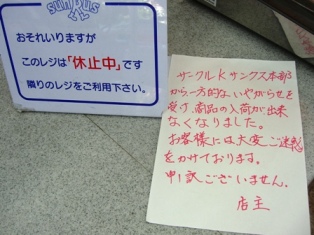 sunkus
おそれいりますが
このレジは「休止中」です
隣りのレジをご利用下さい。
サークルKサンクス本部
から一方的ないやがらせを
受け、商品の入荷が出来
なくなりました。
お客様には大変ご迷惑
をかけております。
申し訳ございません。
店主